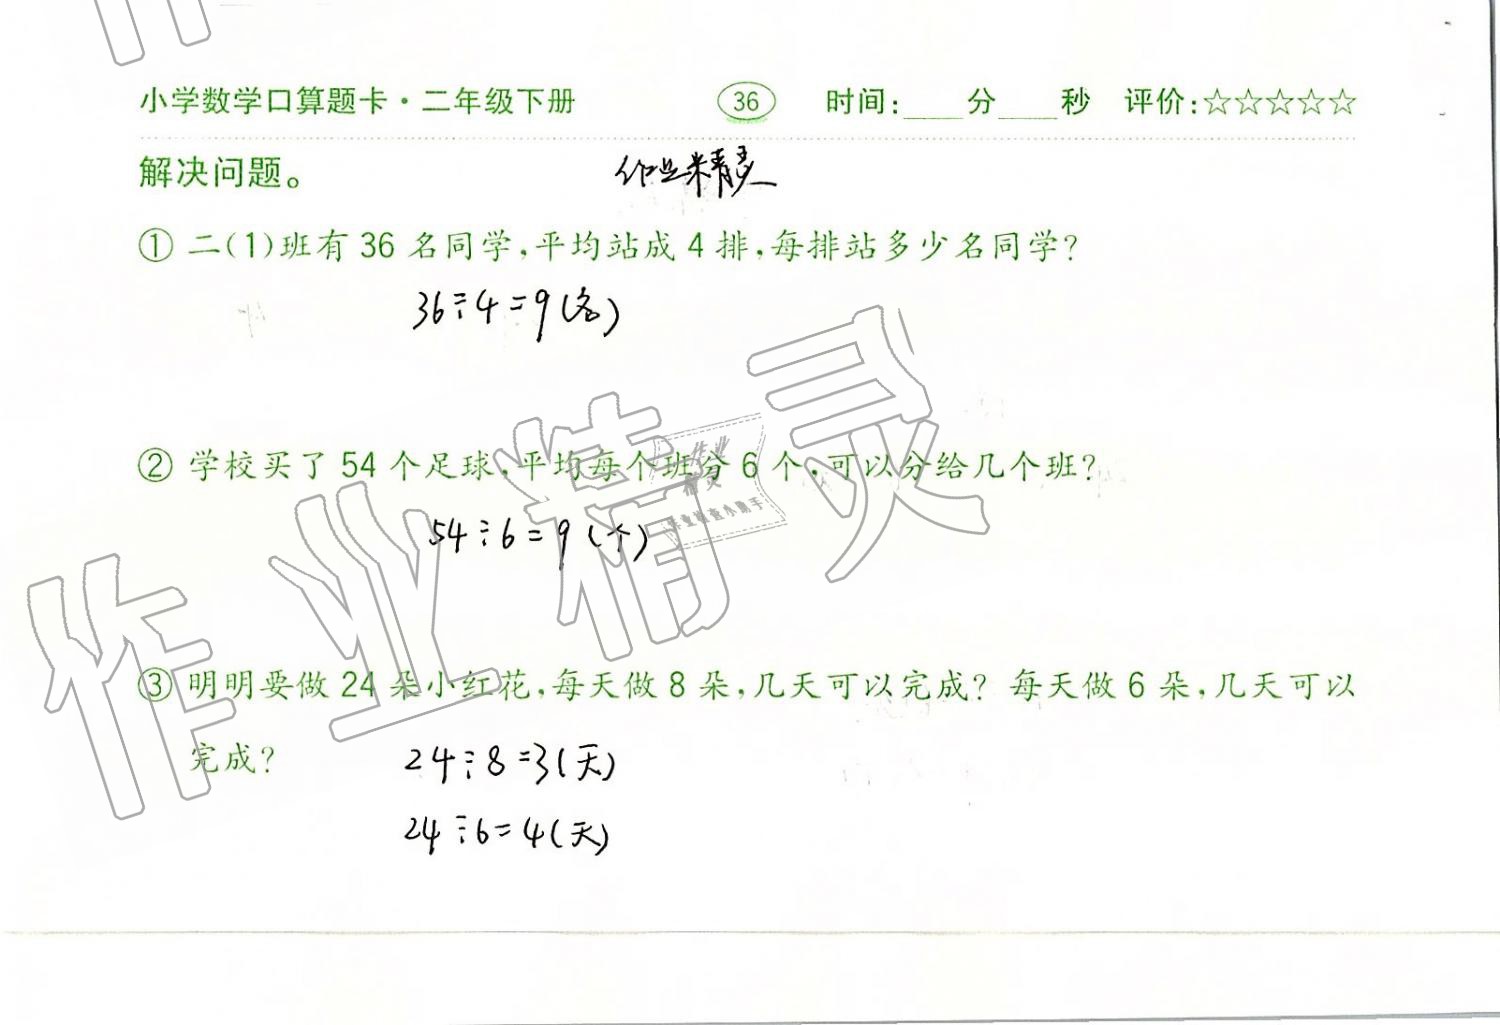 小学数学口算题卡·二年级下册 36 时间:____分____秒 评价:☆☆☆☆☆
解决问题。
作业精灵
① 二(1)班有 36 名同学,平均站成 4 排,每排站多少名同学?
36÷4=9(名)
② 学校买了 54 个足球,平均每个班分 6 个,可以分给几个班?
54÷6=9(个)
③ 明明要做 24 朵小红花,每天做 8 朵,几天可以完成? 每天做 6 朵,几天可以
完成?
24÷8=3(天)
24÷6=4(天)
作业精灵
作业
精灵
作业检查小助手